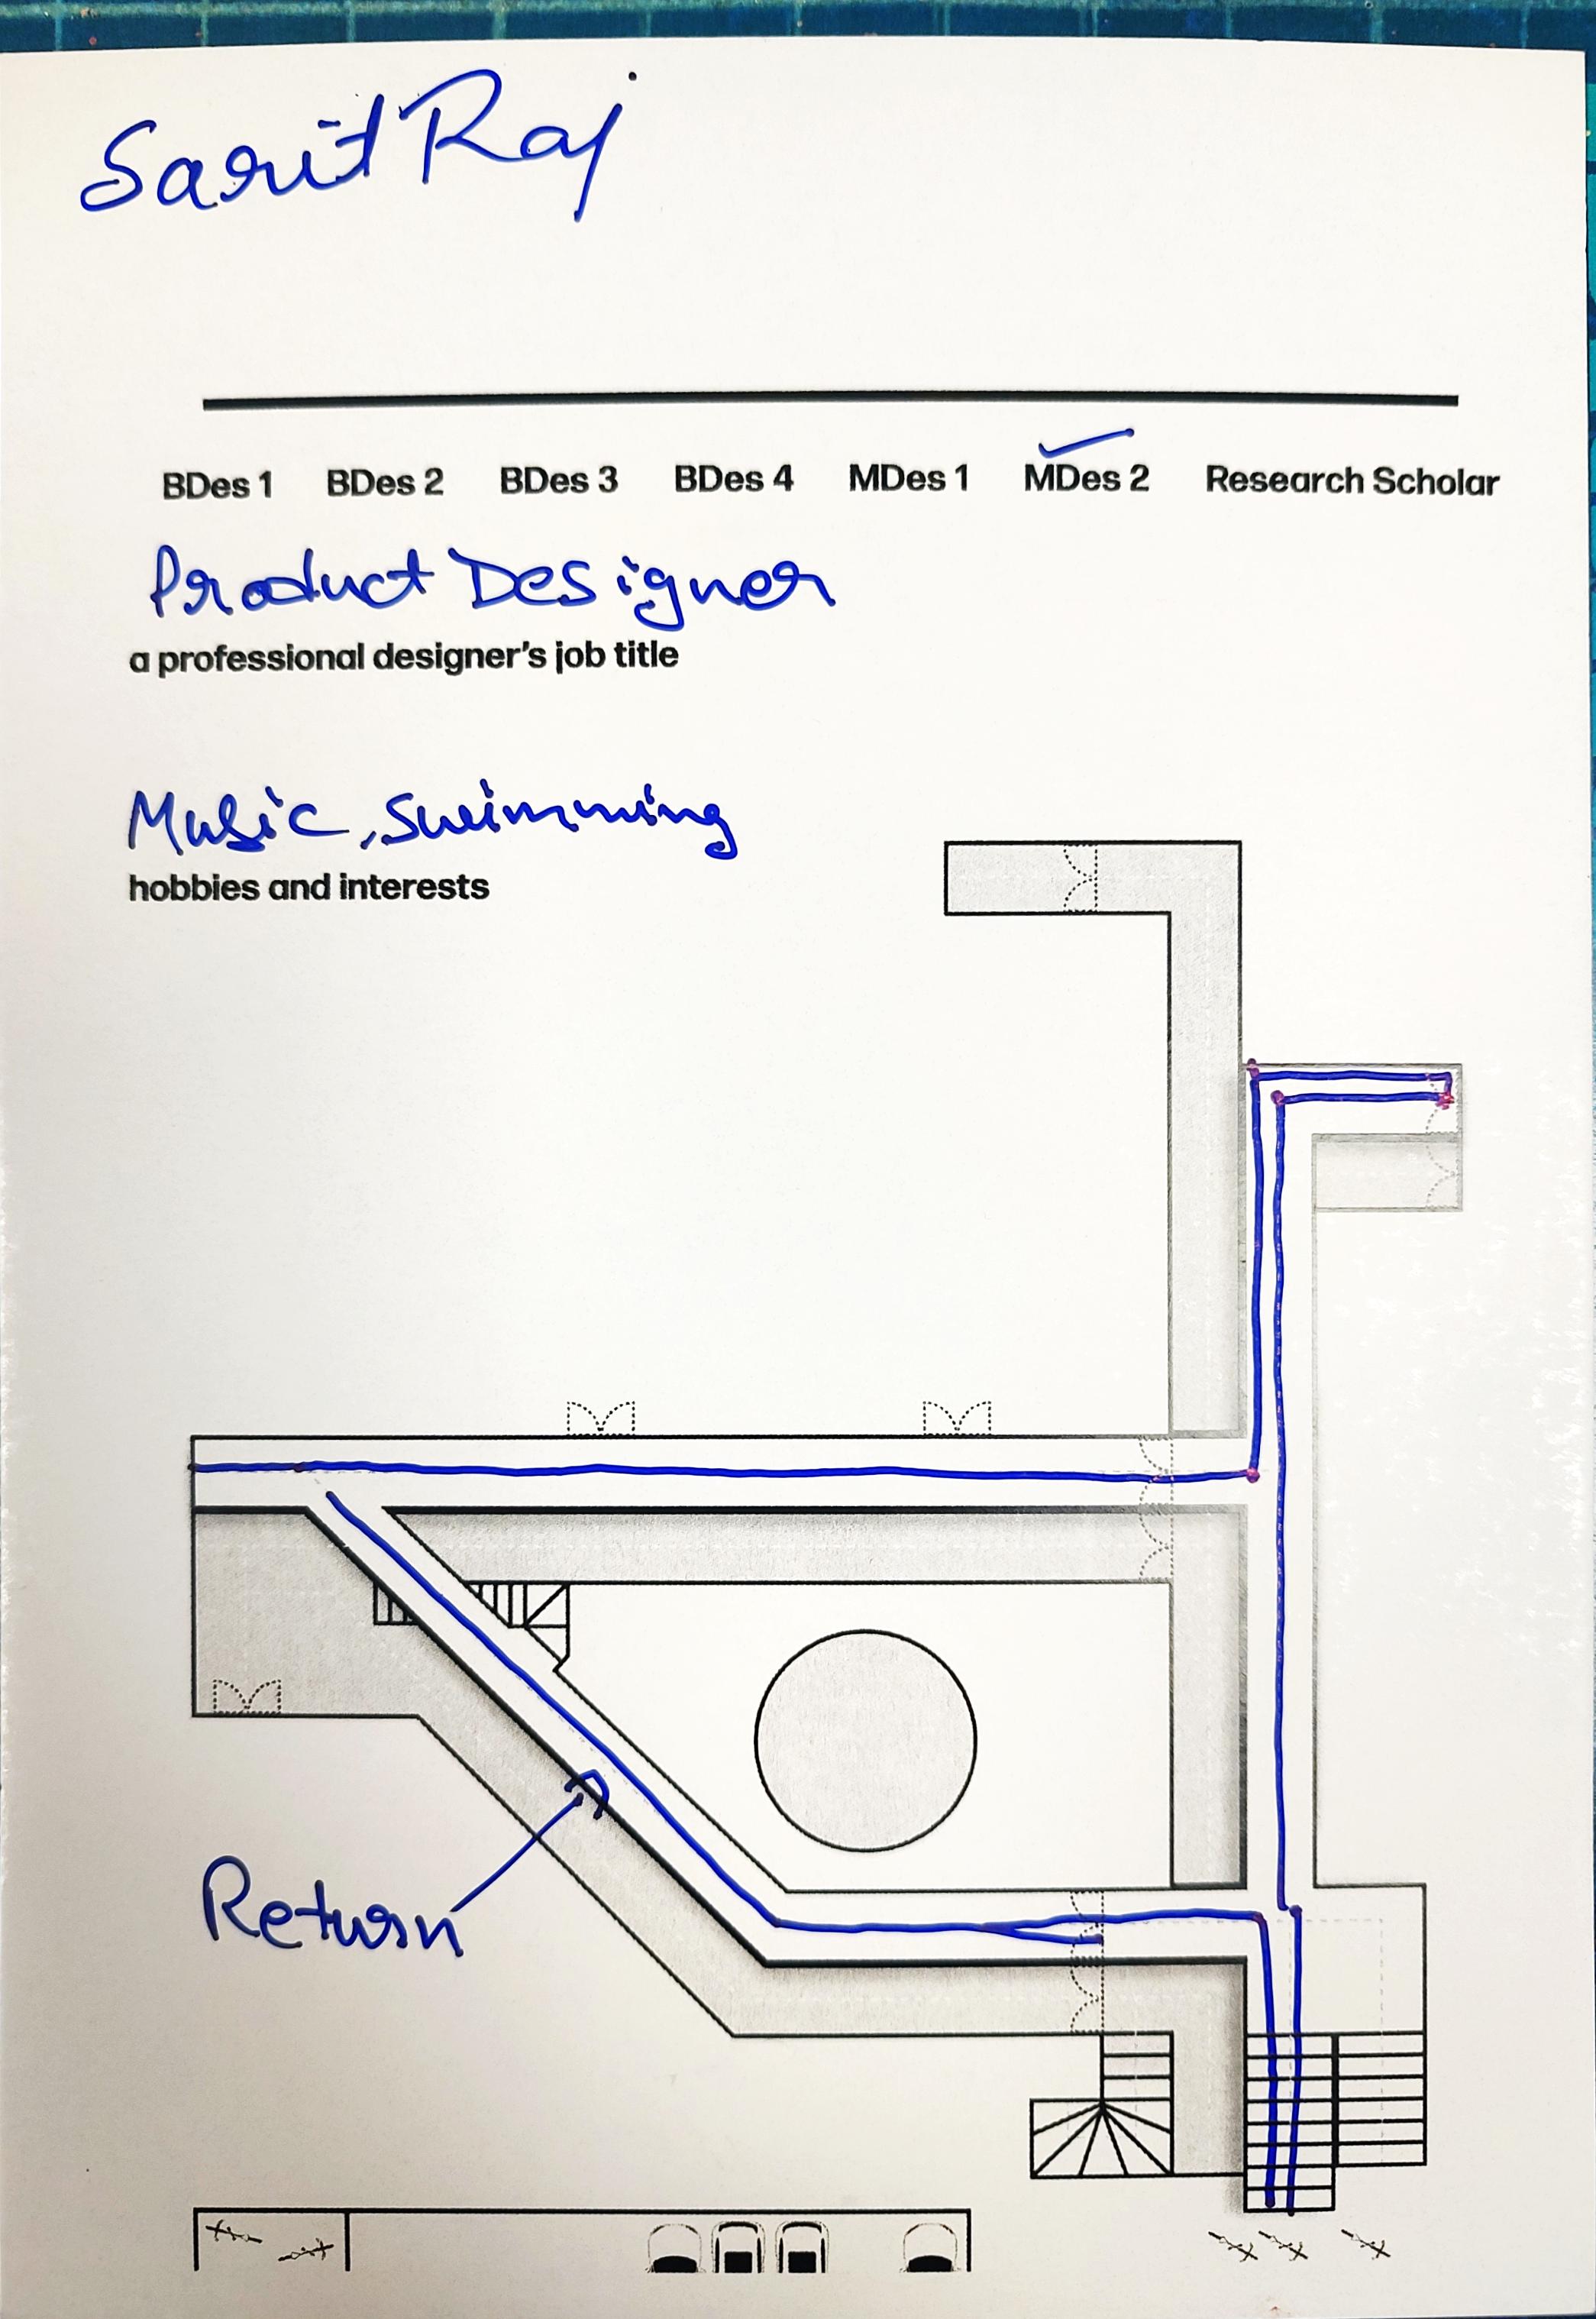 Sarit Raj
BDes 1 BDes 2 BDes 3 BDes 4 MDes 1 MDes 2 Research Scholar
Product Designer
a professional designer's job title
Music, Swimming
hobbies and interests
Return